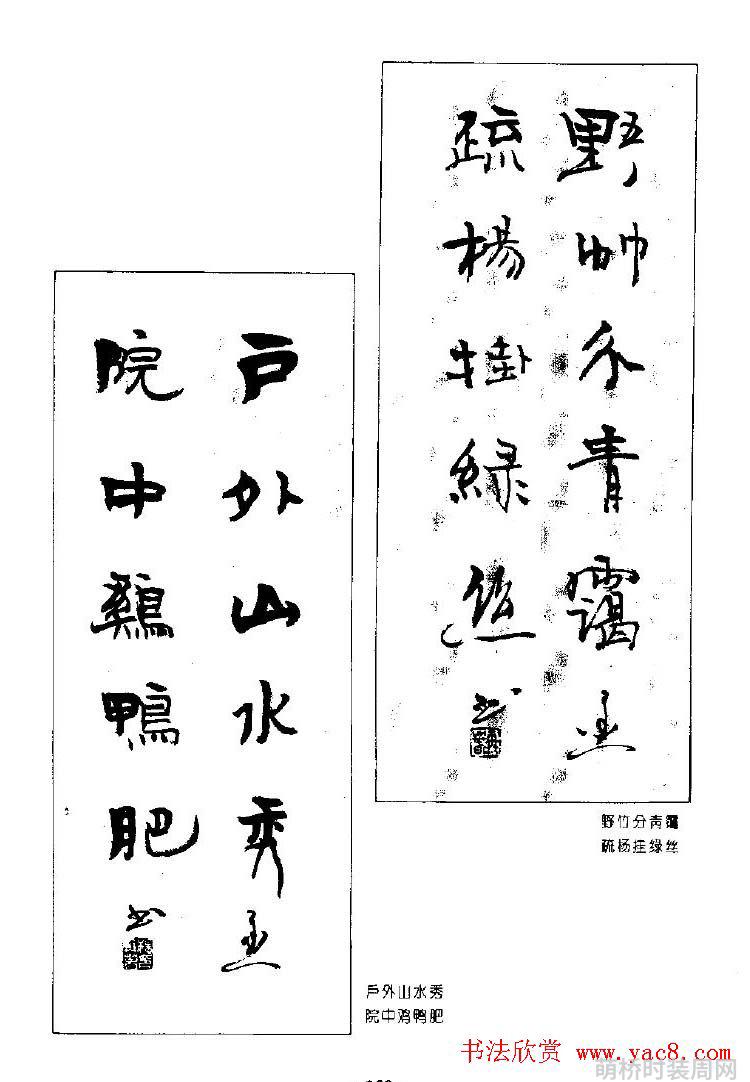 野竹分青靄
疏楊掛綠丝
书
野竹分青靄
疏杨挂绿丝
戶外山水秀
院中鷄鴨肥
书
戶外山水秀
院中鸡鸭肥
书法欣赏 www.yac8.com
萌桥时装周网